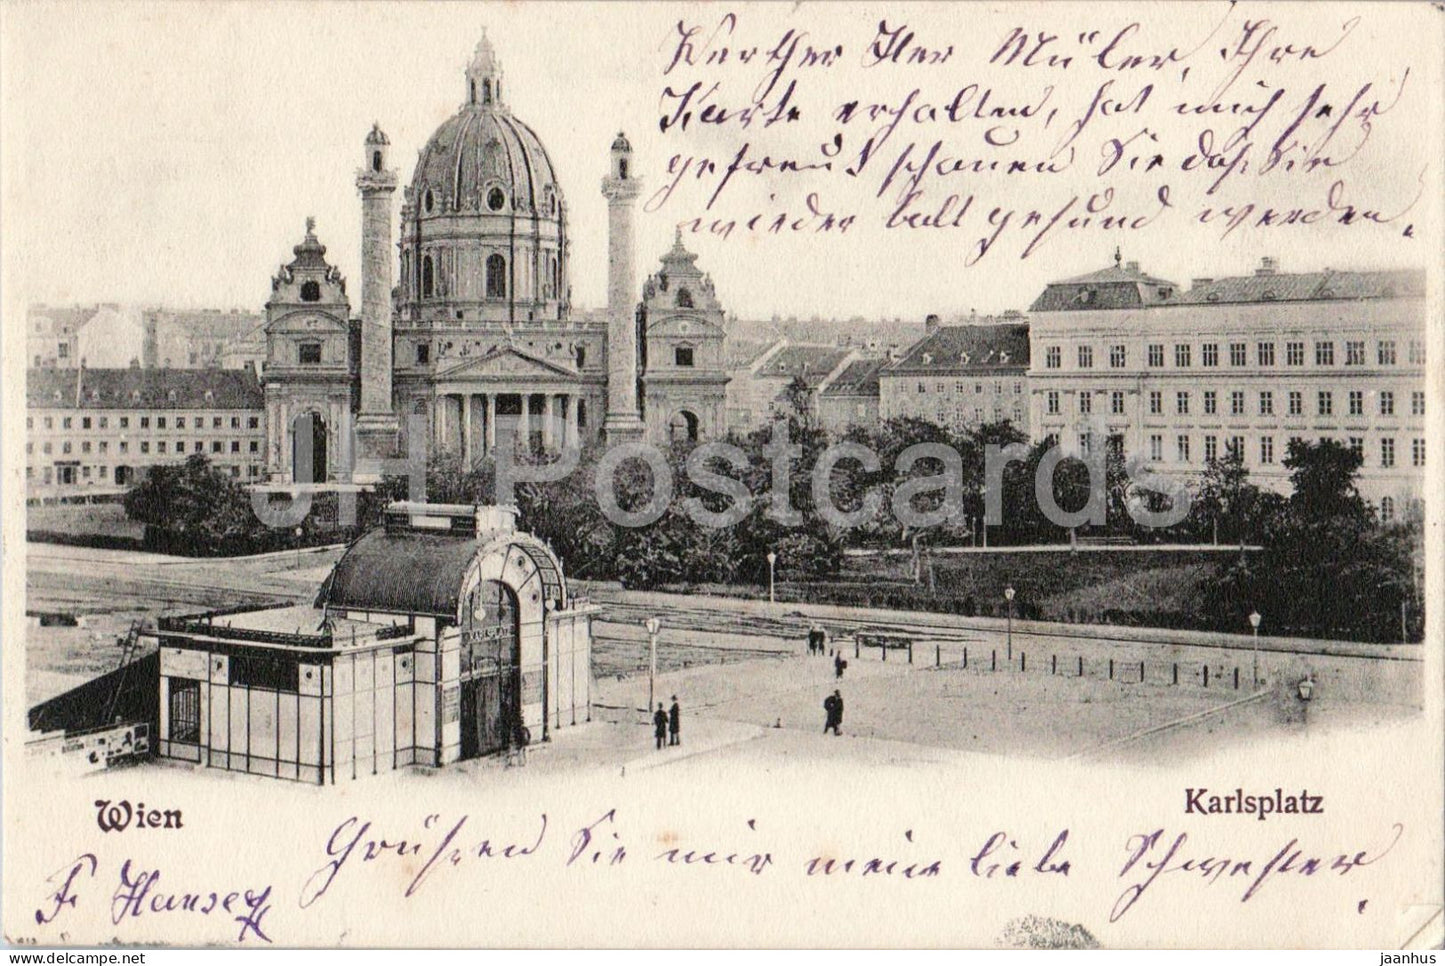 Werther Her Müler, Ihre
Karte erhalten, hat mich sehr
gefreut schauen Sie das Sie
wieder balt gesund werden.
KARLSPLATZ
JH Postcards
Wien
Karlsplatz
Grüßen Sie mir meine liebe Schwester
F Hansey
Wien - old postcard
jaanhus